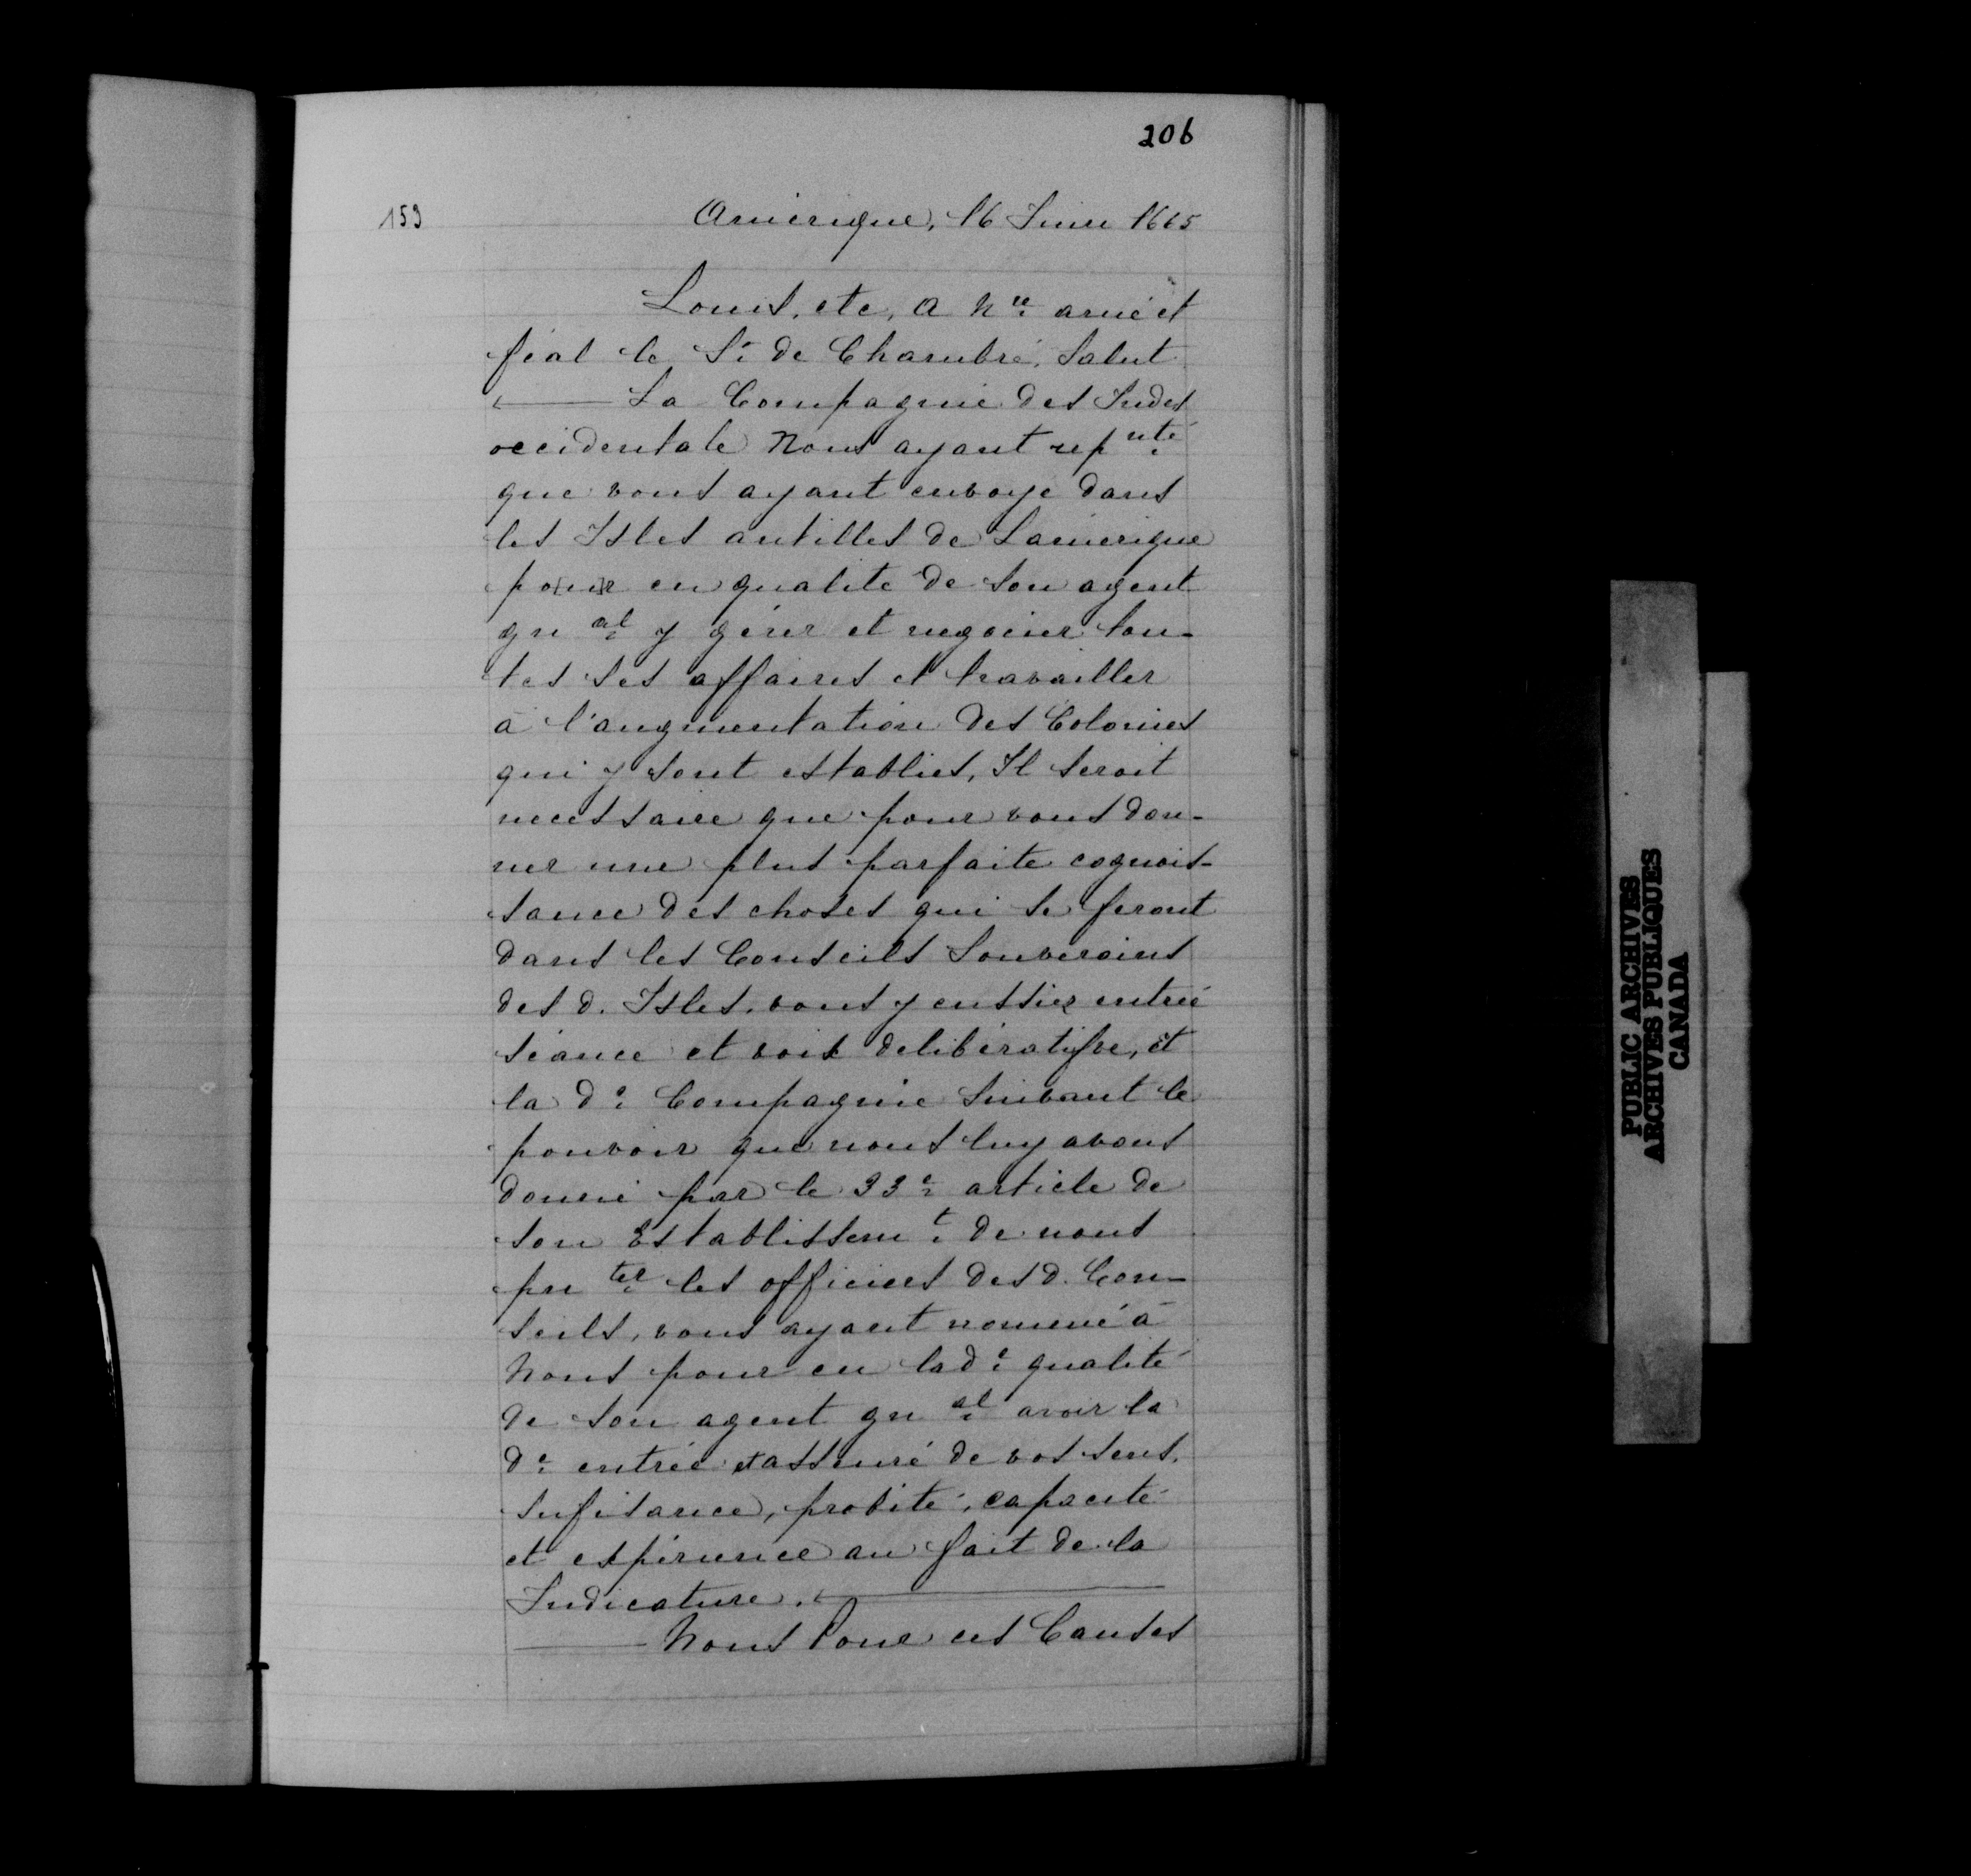 206
159
Amérique, 16 Juin 1665
Louis, etc, A nre amé et
féal le Sr de Chambré, Salut
La Compagnie des Indes
occidentale Nous ayant repnté
que vous ayant envoyé dans
les Isles antilles de Lamérique
pour en qualité de son agent
gnal y gérer et negocier tou-
tes ses affaires et travailler
à l'augmentation des Colonies
qui y sont establies, Il seroit
necessaire que pour vous don-
ner une plus parfaite cognois-
sance des choses qui se feront
dans les Conseils Souverains
des d. Isles, vous y eussiez entrée
séance et voix delibératifve, et
la de Compagnie Suivant le
pouvoir que nous luy avons
donné par le 33e article de
son Establissemt de nous
pnter les officiers des d. Con-
seils, vous ayant nommé à
Nous pour en lade qualité
de son agent gnal avoir la
de entrée et asseuré de vos sens,
sufisance, probité, capacité
et expérience au fait de la
Judicature.
Nous Pour ces Causes
PUBLIC ARCHIVES
ARCHIVES PUBLIQUES
CANADA